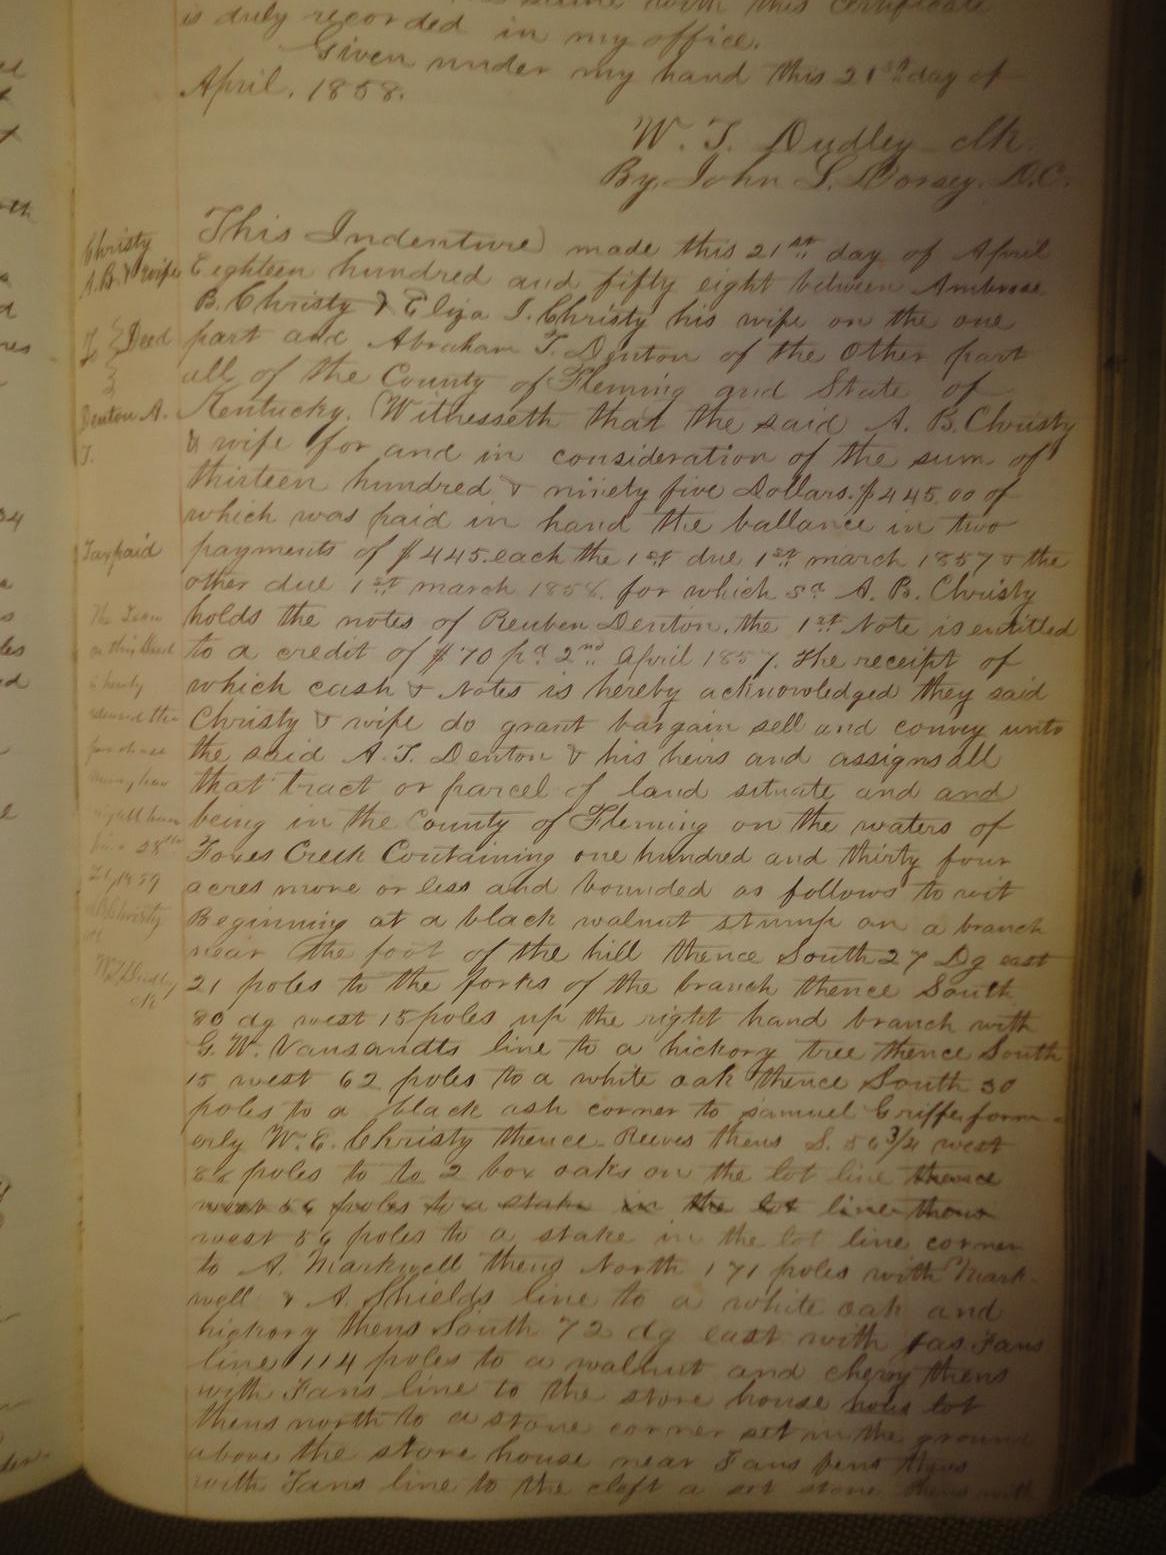 is duly recorded in my office.
Given under my hand this 21st day of
April. 1858.
W. T. Dudley clk.
By. John L. Dorsey. D.C.
Christy
A.B. & wife
To } Deed
Denton A.
T.
Tax paid
on this Deed
is hereby
purchase
28th
AB Christy
W T Dudley
clk
This Indenture made this 21st day of April
Eighteen hundred and fifty eight between Ambrose
B. Christy & Eliza J. Christy his wife on the one
part and Abraham T. Denton of the other part
all of the County of Fleming and State of
Kentucky. Witnesseth that the said A. B. Christy
& wife for and in consideration of the sum of
thirteen hundred & ninety five Dollars. $445.00 of
which was paid in hand the ballance in two
payments of $445. each the 1st due 1st march 1857 & the
other due 1st march 1858. for which sd A. B. Christy
holds the notes of Reuben Denton. the 1st Note is entitled
to a credit of $70 pd 2nd April 1857. The receipt of
which cash & Notes is hereby acknowledged they said
Christy & wife do grant bargain sell and convey unto
the said A. T. Denton & his heirs and assigns all
that tract or parcel of land situate and and
being in the County of Fleming on the waters of
Foxes Creek Containing one hundred and thirty four
acres more or less and bounded as follows to wit
Beginning at a black walnut stump on a branch
near the foot of the hill thence South 27 Dg east
21 poles to the forks of the branch thence South
80 dg west 15 poles up the right hand branch with
G. W. Vansandts line to a hickory tree thence South
15 west 62 poles to a white oak thence South 30
poles to a black ash corner to Samuel form-
erly W. E. Christy thence Reeves thens S. 56 3/4 west
poles to to 2 box oaks on the lot line thence
west 56 poles to a stake in the lot line thens
west poles to a stake in the lot line corner
to A. Markwell thens North 171 poles with Mark-
well & A. Shields line to a white oak and
hickory thens South 72 dg east with Jas. Fans
line 114 poles to a walnut and cherry thens
with Fans line to the store house lot
thens north to a stone corner set in the ground
above the store house near Fans thens
with Fans line to the cleft a set stone thens with